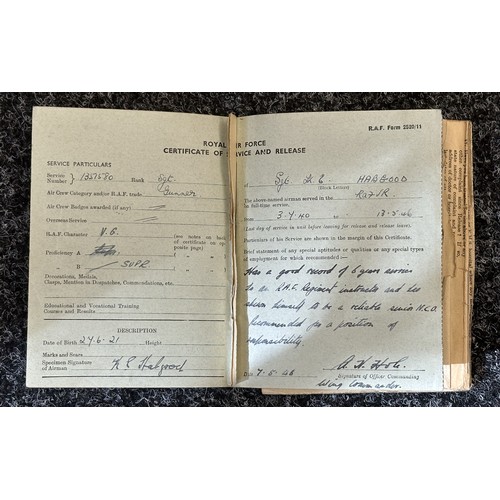 R.A.F. Form 2520/11
ROYAL AIR FORCE
CERTIFICATE OF SERVICE AND RELEASE
SERVICE PARTICULARS
Service Number 1327680 Rank Sgt
Air Crew Category and/or R.A.F. trade Gunner
Air Crew Badges awarded (if any)
Overseas Service
R.A.F. Character V.G. (see notes on back of certificate on opposite page)
Proficiency A
" B SUPR
Decorations, Medals,
Clasps, Mention in Despatches, Commendations, etc.
Educational and Vocational Training
Courses and Results
DESCRIPTION
Date of Birth 24.6.21 Height
Marks and Scars
Specimen Signature
of Airman
Sgt HABGOOD
(Block Letters)
The above-named airman served in the RAFVR
on full-time service,
from 3-7-40 to
(Last day of service in unit before leaving for release and release leave).
Particulars of his Service are shown in the margin of this Certificate.
Brief statement of any special aptitudes or qualities or any special types
of employment for which recommended:—
Has a good record of 6 years service
as an R.A.F. Regiment instructor and has
shown himself to be a reliable senior N.C.O.
Recommended for a position of
responsibility.
Date 7.5.46
Signature of Officer Commanding
Wing Commander.